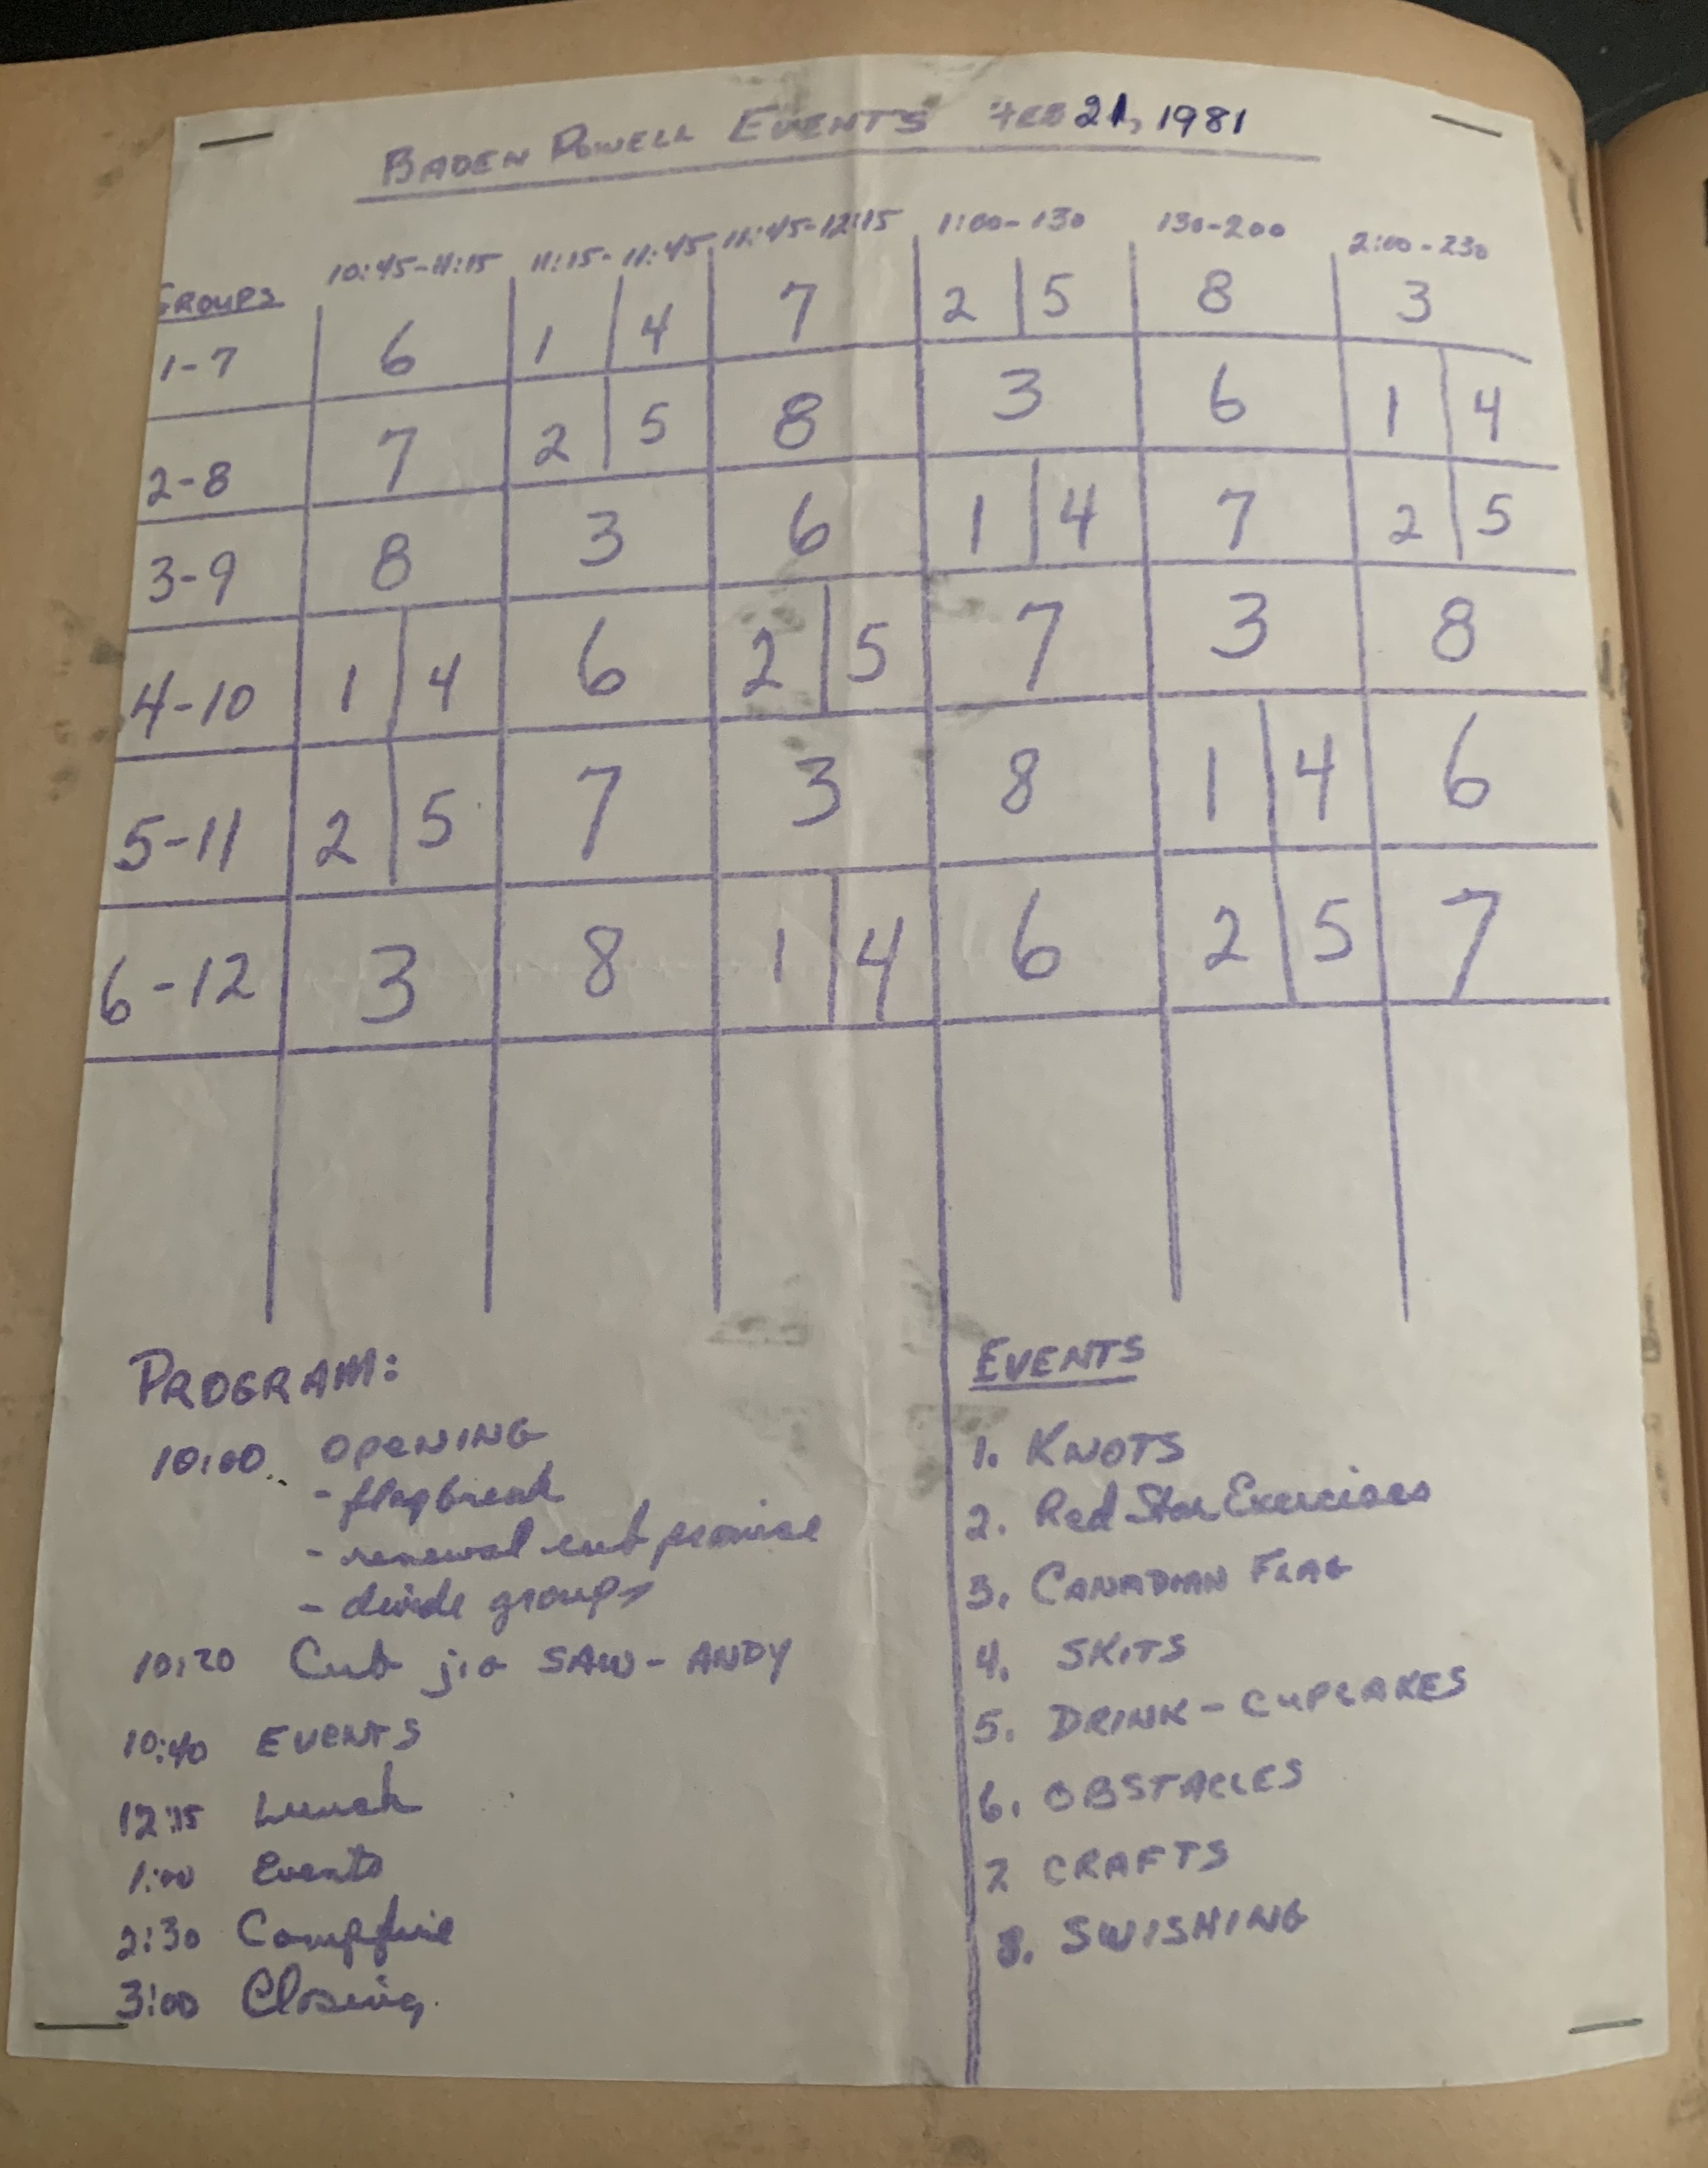 BADEN POWELL EVENTS FEB 21, 1981
GROUPS 10:45-11:15 11:15-11:45 11:45-12:15 1:00-130 130-200 2:00-230
1-7 6 1 4 7 2 5 8 3
2-8 7 2 5 8 3 6 1 4
3-9 8 3 6 1 4 7 2 5
4-10 1 4 6 2 5 7 3 8
5-11 2 5 7 3 8 1 4 6
6-12 3 8 1 4 6 2 5 7
PROGRAM:
10:00 OPENING
- flagbreak
- renewal cub promise
- divide groups
10:20 Cub jig SAW - ANDY
10:40 EVENTS
12:15 Lunch
1:00 Events
2:30 Campfire
3:00 Closing.
EVENTS
1. KNOTS
2. Red Star Exercises
3. CANADIAN FLAG
4. SKITS
5. DRINK - CUPCAKES
6. OBSTACLES
7 CRAFTS
8. SWISHING